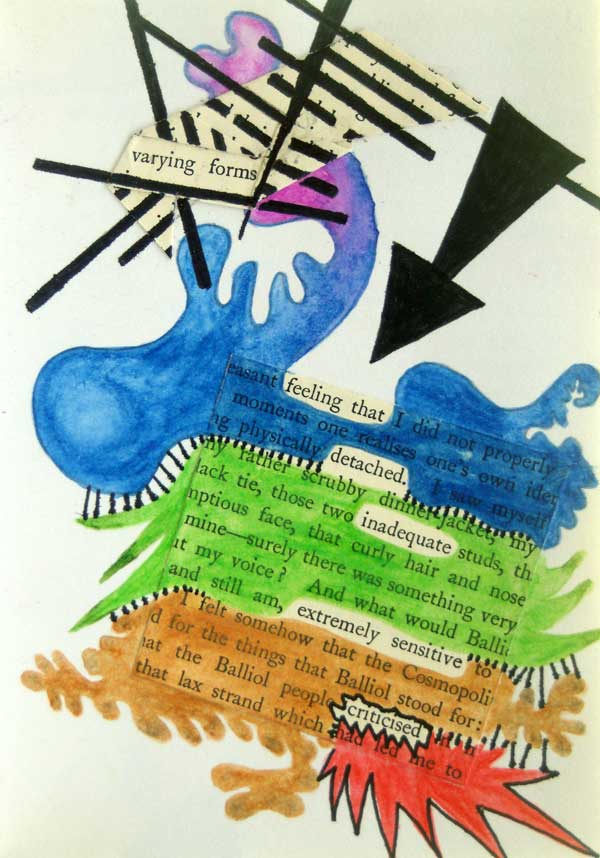 varying forms
easant feeling that I did not properly
moments one realises one's own iden
ng physically detached. I saw myself
my rather scrubby dinner-jacket, my
lack tie, those two inadequate studs, th
nptious face, that curly hair and nose
mine—surely there was something very
ut my voice? And what would Balli
and still am, extremely sensitive to
I felt somehow that the Cosmopoli
d for the things that Balliol stood for:
nat the Balliol people criticised
that lax strand which had led me to